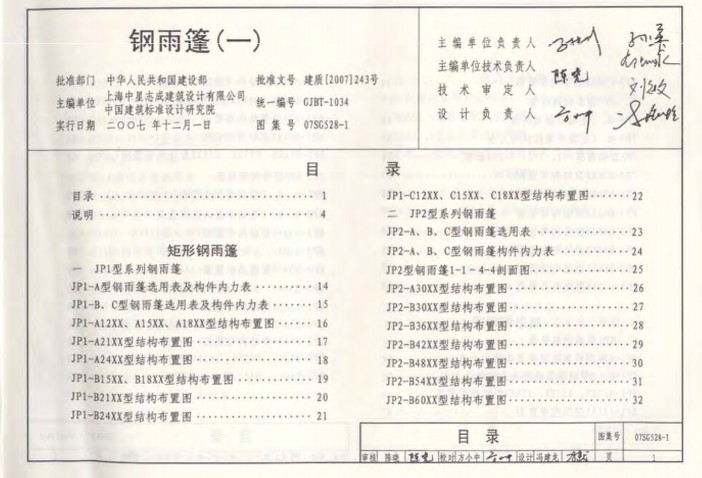 钢雨篷(一)
批准部门 中华人民共和国建设部 批准文号 建质[2007]243号
主编单位 上海中星志成建筑设计有限公司
中国建筑标准设计研究院 统一编号 GJBT-1034
实行日期 二〇〇七年十二月一日 图集号 07SG528-1
主编单位负责人
主编单位技术负责人
技术审定人
设计负责人
目录
目录 1
说明 4
矩形钢雨篷
一 JP1型系列钢雨篷
JP1-A型钢雨篷选用表及构件内力表 14
JP1-B、C型钢雨篷选用表及构件内力表 15
JP1-A12XX、A15XX、A18XX型结构布置图 16
JP1-A21XX型结构布置图 17
JP1-A24XX型结构布置图 18
JP1-B15XX、B18XX型结构布置图 19
JP1-B21XX型结构布置图 20
JP1-B24XX型结构布置图 21
JP1-C12XX、C15XX、C18XX型结构布置图 22
二 JP2型系列钢雨篷
JP2-A、B、C型钢雨篷选用表 23
JP2-A、B、C型钢雨篷构件内力表 24
JP2型钢雨篷1-1~4-4剖面图 25
JP2-A30XX型结构布置图 26
JP2-B30XX型结构布置图 27
JP2-B36XX型结构布置图 28
JP2-B42XX型结构布置图 29
JP2-B48XX型结构布置图 30
JP2-B54XX型结构布置图 31
JP2-B60XX型结构布置图 32
目录 图集号 07SG528-1
审核 陈晓 校对 方小中 设计 冯建龙 页 1